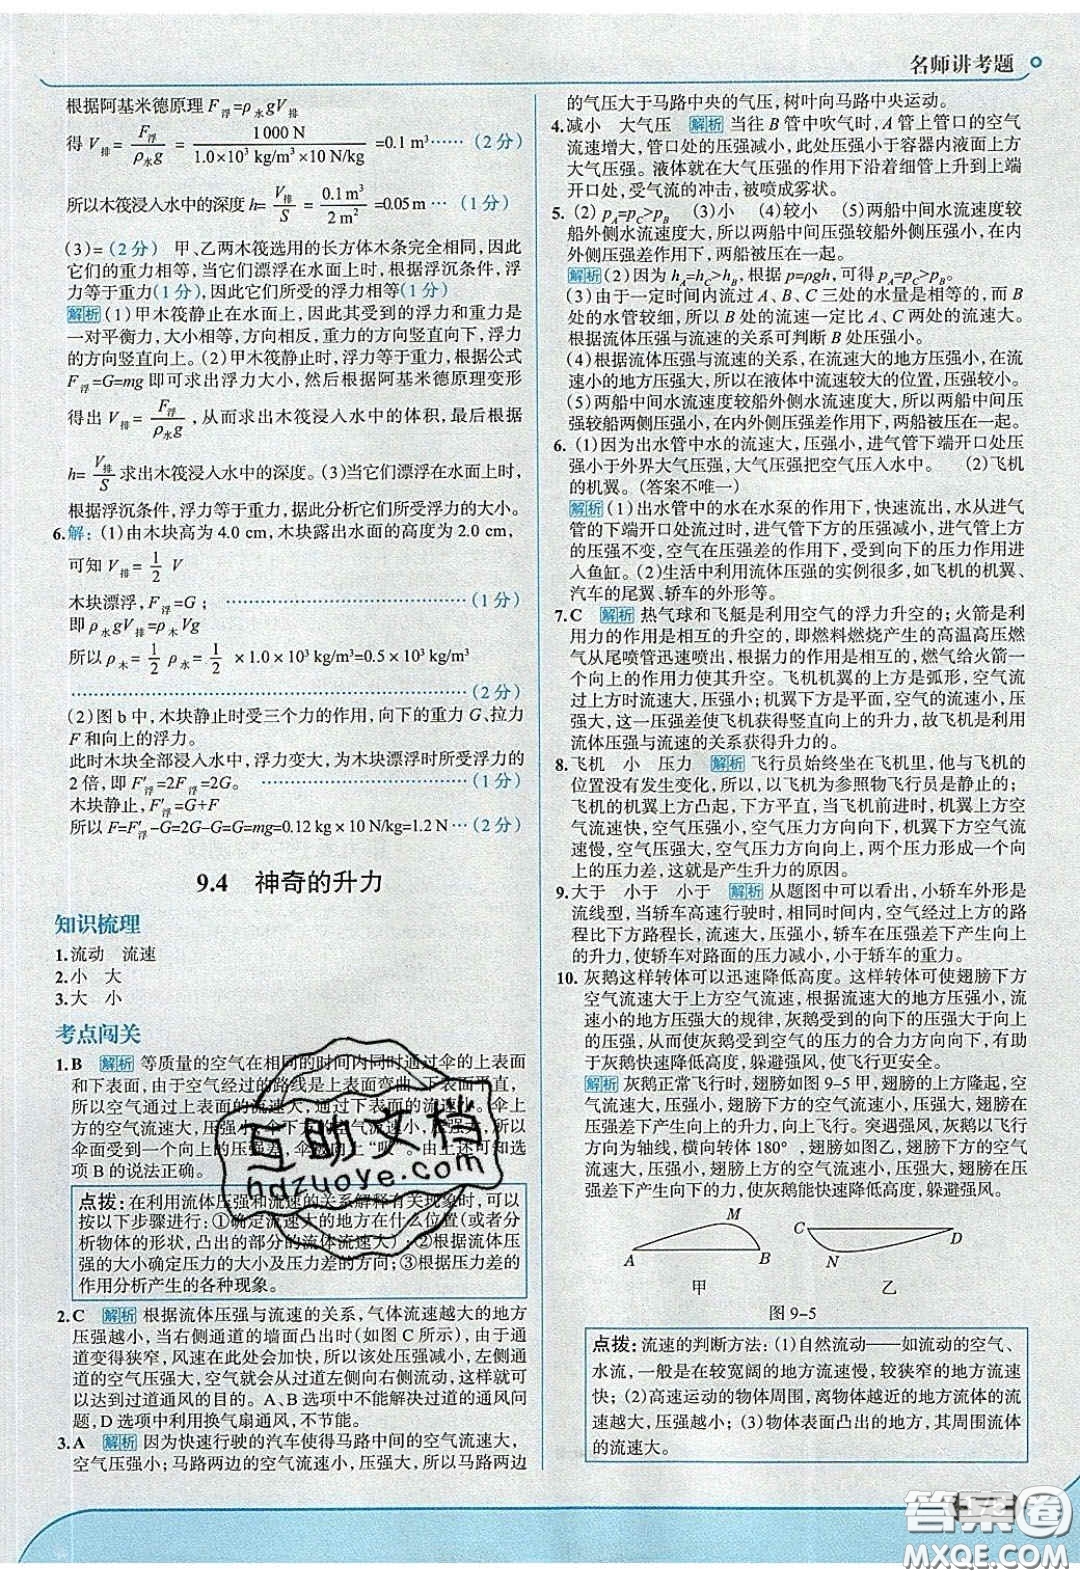 名师讲考题
根据阿基米德原理 F浮=ρ水gV排
得 V排= F浮/ρ水g = 1000 N/1.0×10³ kg/m³×10 N/kg =0.1 m³……(2分)
所以木筏浸入水中的深度 h= V排/S = 0.1 m³/2 m² =0.05 m …(1分)
(3)=(2分) 甲、乙两木筏选用的长方体木条完全相同,因此
它们的重力相等,当它们漂浮在水面上时,根据浮沉条件,浮
力等于重力(1分),因此它们所受的浮力相等(1分)
解析 (1)甲木筏静止在水面上,因此其受到的浮力和重力是
一对平衡力,大小相等,方向相反,重力的方向竖直向下,浮力
的方向竖直向上。(2)甲木筏静止时,浮力等于重力,根据公式
F浮=G=mg 即可求出浮力大小,然后根据阿基米德原理变形
得出 V排= F浮/ρ水g ,从而求出木筏浸入水中的体积,最后根据
h= V排/S 求出木筏浸入水中的深度。(3)当它们漂浮在水面上时,
根据浮沉条件,浮力等于重力,据此分析它们所受浮力的大小。
6.解:(1)由木块高为 4.0 cm,木块露出水面的高度为 2.0 cm,
可知 V排= 1/2 V
木块漂浮,F浮=G; ……(1分)
即 ρ水gV排=ρ木Vg
所以 ρ木= 1/2 ρ水= 1/2 ×1.0×10³ kg/m³=0.5×10³ kg/m³
……(2分)
(2)图 b 中,木块静止时受三个力的作用,向下的重力 G、拉力
F 和向上的浮力。
此时木块全部浸入水中,浮力变大,为木块漂浮时所受浮力的
2 倍,即 F′浮=2F浮=2G。 ……(1分)
木块静止,F′浮=G+F
所以 F=F′浮-G=2G-G=G=mg=0.12 kg×10 N/kg=1.2 N…(2分)
9.4 神奇的升力
知识梳理
1.流动 流速
2.小 大
3.大 小
考点闯关
1.B 解析 等质量的空气在相同的时间内同时通过伞的上表面
和下表面,由于空气经过的路线是上表面弯曲、下表面平直,
所以空气通过上表面的流速大,通过下表面的流速小。伞上
方的空气流速大,压强小,伞下方的空气流速小,压强大。所以
伞面受到一个向上的压强差,伞被向上“吸”。由上述可知选
项 B 的说法正确。
点拨:在利用流体压强和流速的关系解释有关现象时,可以
按以下步骤进行:①确定流速大的地方在什么位置(或者分
析物体的形状,凸出的部分的流体流速大);②根据流体压
强的大小确定压力的大小及压力差的方向;③根据压力差的
作用分析产生的各种现象。
2.C 解析 根据流体压强与流速的关系,气体流速越大的地方
压强越小,当右侧通道的墙面凸出时(如图 C 所示),由于通
道变得狭窄,风速在此处会加快,所以此处压强减小,左侧通道
的空气压强大,空气就会从过道左侧向右侧流动,从而
达到过道通风的目的。A、B 选项中不能解决过道的通风问
题,D 选项中利用换气扇通风,不节能。
3.A 解析 因为快速行驶的汽车使得马路中间的空气流速大,
空气压强小;马路两边的空气流速小,压强大,所以马路两边
的气压大于马路中央的气压,树叶向马路中央运动。
4.减小 大气压 解析 当往 B 管中吹气时,A 管上管口的空气
流速增大,管口处的压强减小,此处压强小于容器内液面上方
大气压强。液体就在大气压强的作用下沿着细管上升到上端
开口处,受气流的冲击,被喷成雾状。
5.(2)pA=pC>pB (3)小 (4)较小 (5)两船中间水流速度较
船外侧水流速度大,所以两船中间压强较船外侧压强小,在内
外侧压强差作用下,两船被压在一起。
解析 (2)因为 hA=hC>hB,根据 p=ρgh,可得 pA=pC>pB。
(3)由于一定时间内流过 A、B、C 三处的水量是相等的,而 B
处的水管较细,所以 B 处的流速一定比 A、C 两处的流速大。
根据流体压强与流速的关系可判断 B 处压强小。
(4)根据流体压强与流速的关系,在流速大的地方压强小,在流
速小的地方压强大,所以在液体中流速较大的位置,压强较小。
(5)两船中间水流速度较船外侧水流速度大,所以两船中间压
强较船两侧压强小,在内外侧压强差作用下,两船被压在一起。
6.(1)因为出水管中水的流速大,压强小,进气管下端开口处压
强小于外界大气压强,大气压强把空气压入水中。 (2)飞机
的机翼。(答案不唯一)
解析 (1)出水管中的水在水泵的作用下,快速流出,水从进气
管的下端开口处流过时,进气管下方的压强减小,进气管上方
的压强不变,空气在压强差的作用下,受到向下的压力作用进
入鱼缸。(2)生活中利用流体压强的实例很多,如飞机的机翼、
汽车的尾翼、轿车的外形等。
7.C 解析 热气球和飞艇是利用空气的浮力升空的;火箭是利
用力的作用是相互的升空的,即燃料燃烧产生的高温高压燃
气从尾喷管迅速喷出,根据力的作用是相互的,燃气给火箭一
个向上的作用力使其升空。飞机的机翼上方是弧形,空气流
过上方时流速大,压强小;机翼下方是平面,空气的流速小,压
强大,这一压强差使飞机获得竖直向上的升力,故飞机是利用
流体压强与流速的关系获得升力的。
8.飞机 小 压力 解析 飞行员始终坐在飞机里,他与飞机的
位置没有发生变化,所以,以飞机为参照物飞行员是静止的;
飞机的机翼上方凸起,下方平直,当飞机前进时,机翼上方空
气流速快,空气压强小,空气压力方向向下,机翼下方空气流
速慢,空气压强大,空气压力方向向上,两力作用形成一个向
上的压力差,这就是产生升力的原因。
9.大于 小于 小于 解析 从题图中可以看出,小轿车外形是
流线型,当轿车高速行驶时,相同时间内,空气经过上方的路
程比下方路程长,流速大,压强小,轿车在压强差下产生向上
的升力,轿车对路面的压力减小,小于轿车的重力。
10.灰鹅这样转体可以迅速降低高度。这样转体可使翅膀下方
空气流速大于上方空气流速,根据流速大的地方压强小,流
速小的地方压强大的规律,灰鹅受到的向下的压强大于向上的压
强,从而使灰鹅受到空气的压力的合力方向向下,有助
于灰鹅快速降低高度,躲避强风,使飞行更安全。
解析 灰鹅正常飞行时,翅膀如图 9-5 甲,翅膀的上方隆起,空
气流速大,压强小,翅膀下方的空气流速小,压强大,翅膀在
压强差下产生向上的升力,向上飞行。突遇强风,灰鹅以飞行
方向为轴线,横向转体 180°,翅膀如图乙,翅膀下方的空气
流速大,压强小,翅膀上方的空气流速小,压强大,翅膀在压
强差下产生向下的力,使灰鹅能快速降低高度,躲避强风。
M C D
A B N
甲 乙
图 9-5
点拨:流速的判断方法:(1)自然流动——如流动的空气、
水流,一般是在较宽阔的地方流速慢,较狭窄的地方流速
快;(2)高速运动的物体周围,离物体越近的地方流体的流
速越大,压强越小;(3)物体表面凸出的地方,其周围流体
的流速大。
互助文档
hdzuoye.com
答案圈
MXQE.COM